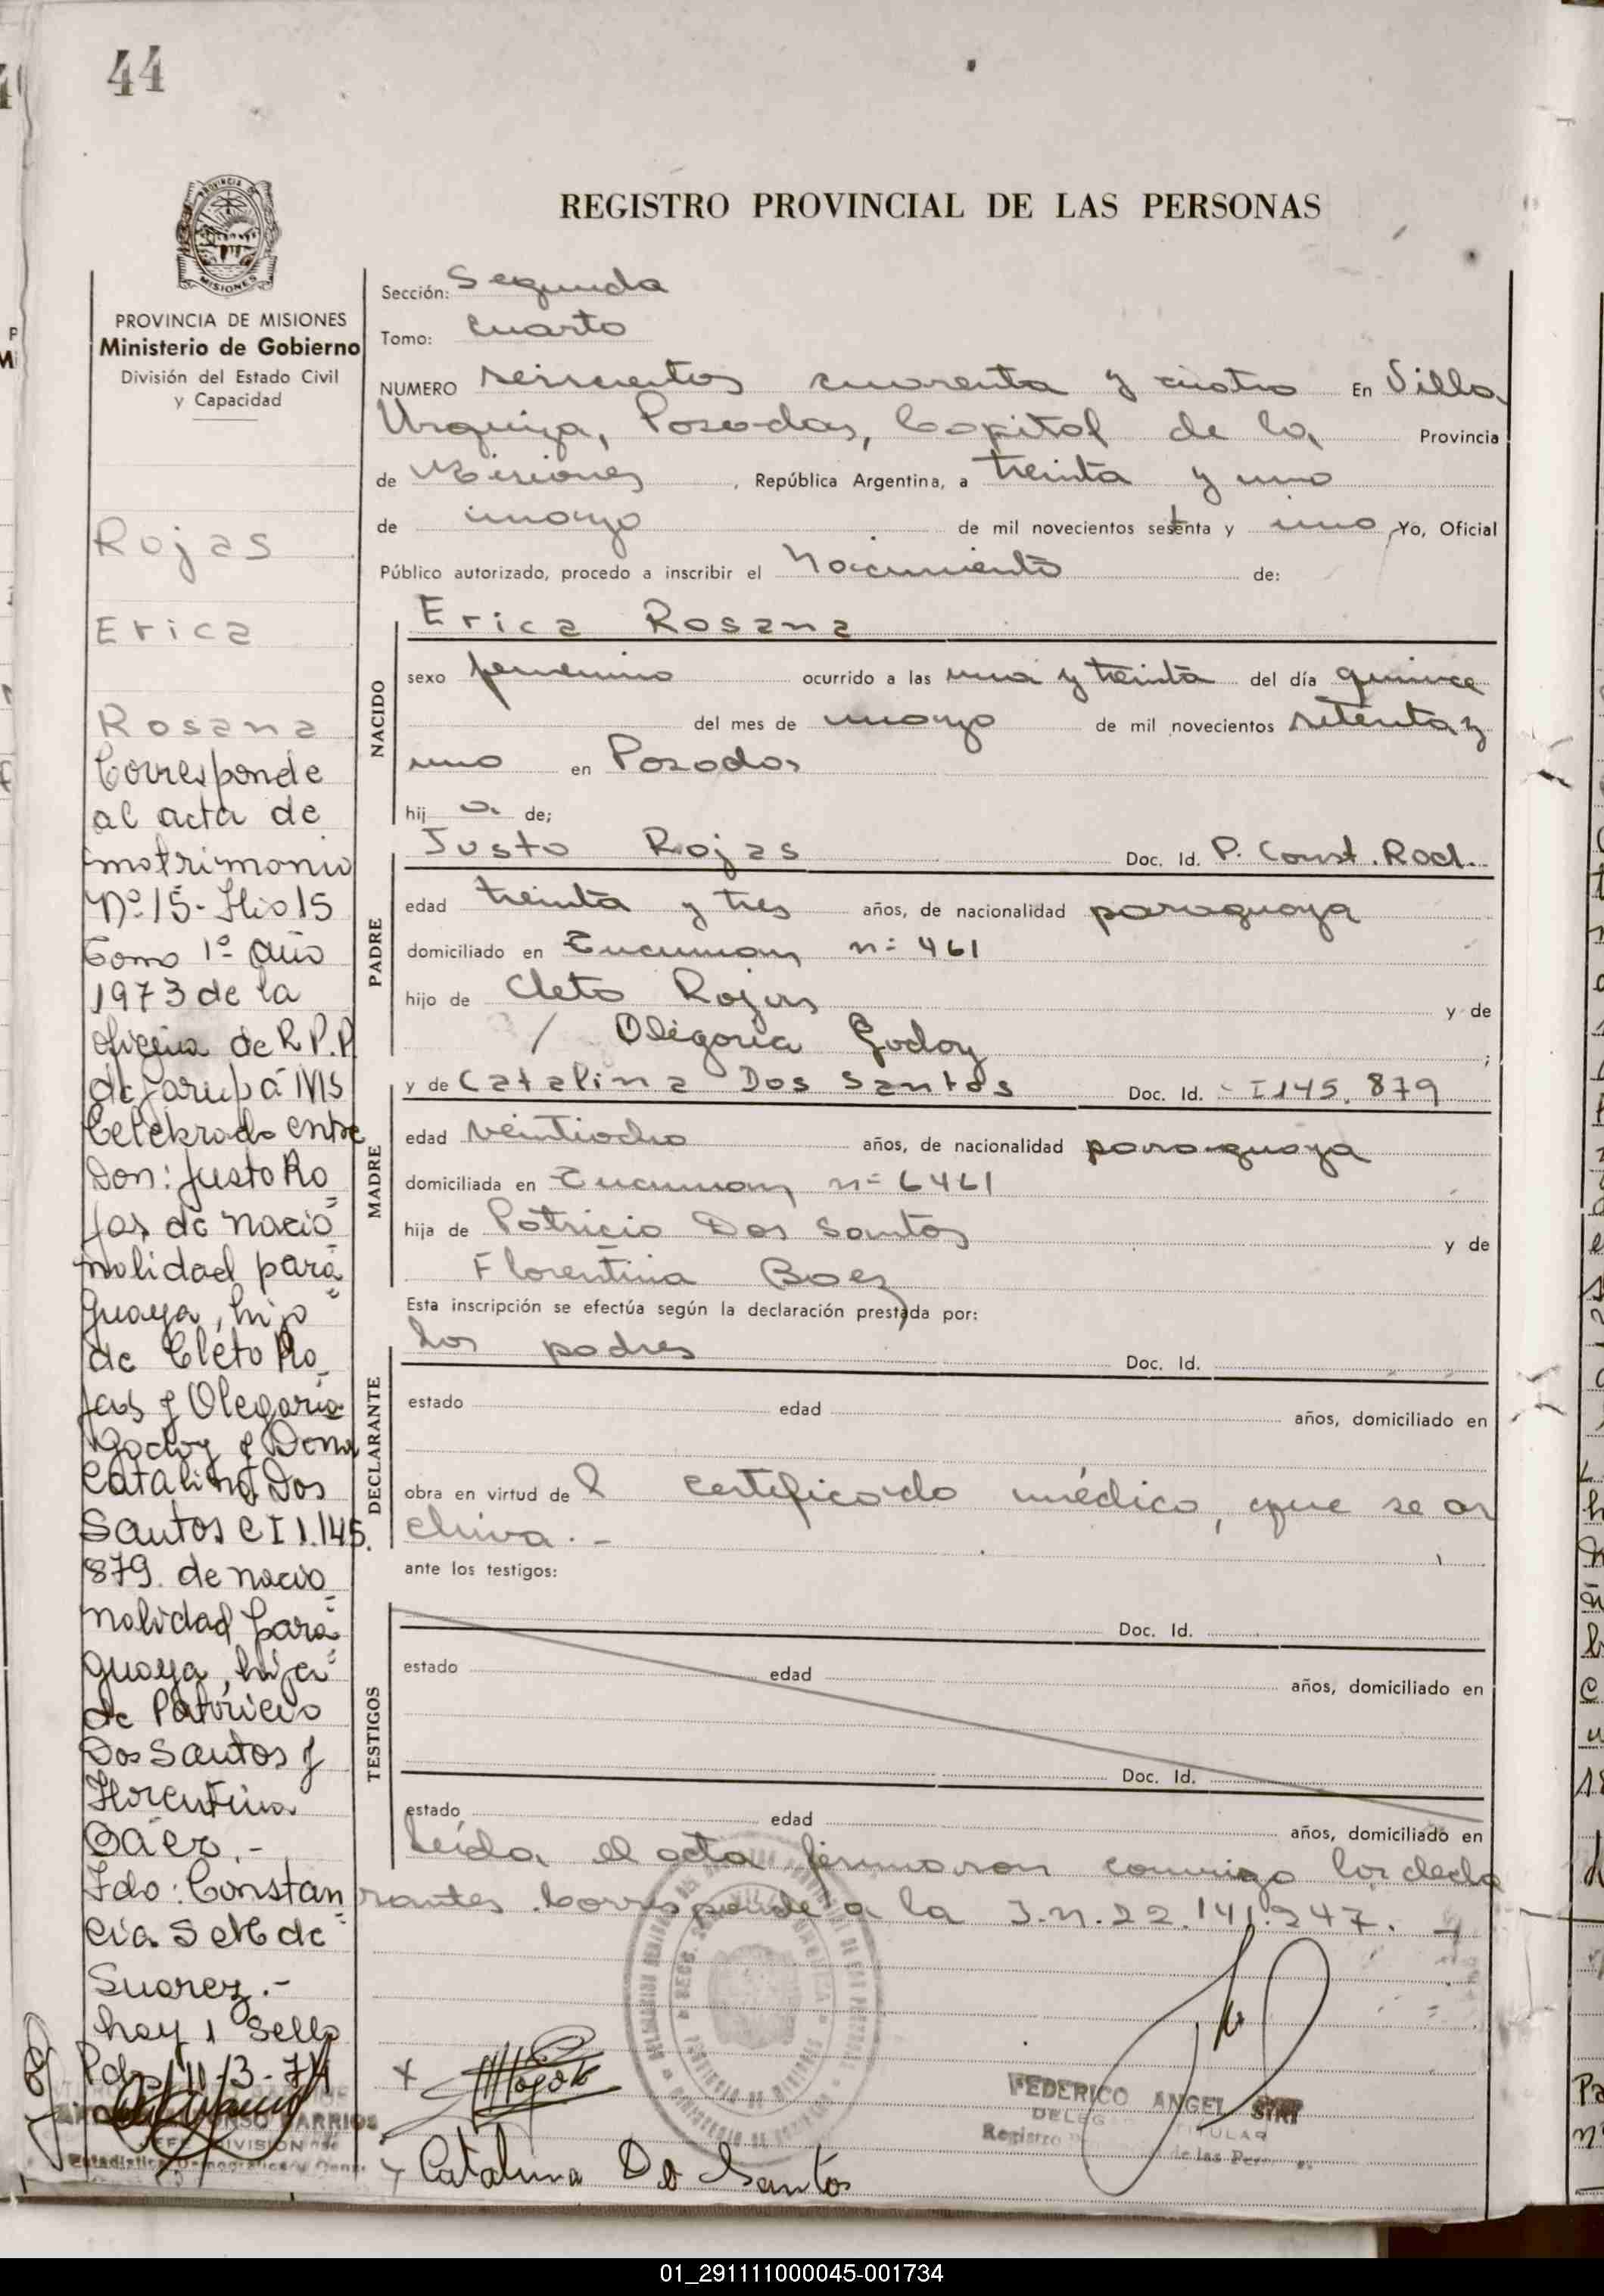 44
REGISTRO PROVINCIAL DE LAS PERSONAS
PROVINCIA DE
MISIONES
PROVINCIA DE MISIONES
Ministerio de Gobierno
División del Estado Civil
y Capacidad
Rojas
Erica
Rosana
Corresponde
al acta de
matrimonio
Nº 15 - Flio 15
Tomo 1º año
1973 de la
oficina de R.P.P
de Garupá Mis
Celebrado entre
Don: Justo Ro
jas de nacio
nalidad para
guaya, hijo
de Cleto Ro
jas y Olegaria
Godoy y Dona
Catalina Dos
Santos C I 1.145.
879. de nacio
nalidad para
guaya, hija
de Patricio
Dos Santos y
Florentina
Báez.-
Fdo: Constan
cia S de
Suarez.-
hay 1 sello
Pdas 11-3-74
BARRIOS
JEFE DIVISION
Estadistica Demografica y
Sección: Segunda
Tomo: Cuarto
NUMERO seiscientos cuarenta y cuatro En Villa
Urquiza, Posadas, Capital de la Provincia
de Misiones, República Argentina, a treinta y uno
de marzo de mil novecientos setenta y uno Yo, Oficial
Público autorizado, procedo a inscribir el Nacimiento de:
NACIDO
Erica Rosana
sexo femenino ocurrido a las una y treinta del día quince
del mes de marzo de mil novecientos setenta y
uno en Posadas
hij a de;
PADRE
Justo Rojas Doc. Id. P. Const. Rad.
edad treinta y tres años, de nacionalidad paraguaya
domiciliado en Tucuman nº 461
hijo de Cleto Rojas y de
Olegoria Godoy ;
MADRE
y de Catalina Dos Santos Doc. Id. - I 145. 879
edad veintiocho años, de nacionalidad paraguaya
domiciliada en Tucuman nº 6461
hija de Patricio Dos Santos y de
Florentina Baez
Esta inscripción se efectúa según la declaración prestada por:
DECLARANTE
los padres Doc. Id.
estado edad años, domiciliado en
obra en virtud de l certificado médico, que se ar
chiva.-
ante los testigos:
TESTIGOS
Doc. Id.
estado edad años, domiciliado en
Doc. Id.
estado edad años, domiciliado en
Leída el acta firmaron conmigo los decla
rantes. Corresponde a la I.N. 22.141.247.-
Catalina Do Santos
FEDERICO ANGEL SIRI
DELEG TITULAR
Registro de las Pers
01_291111000045-001734